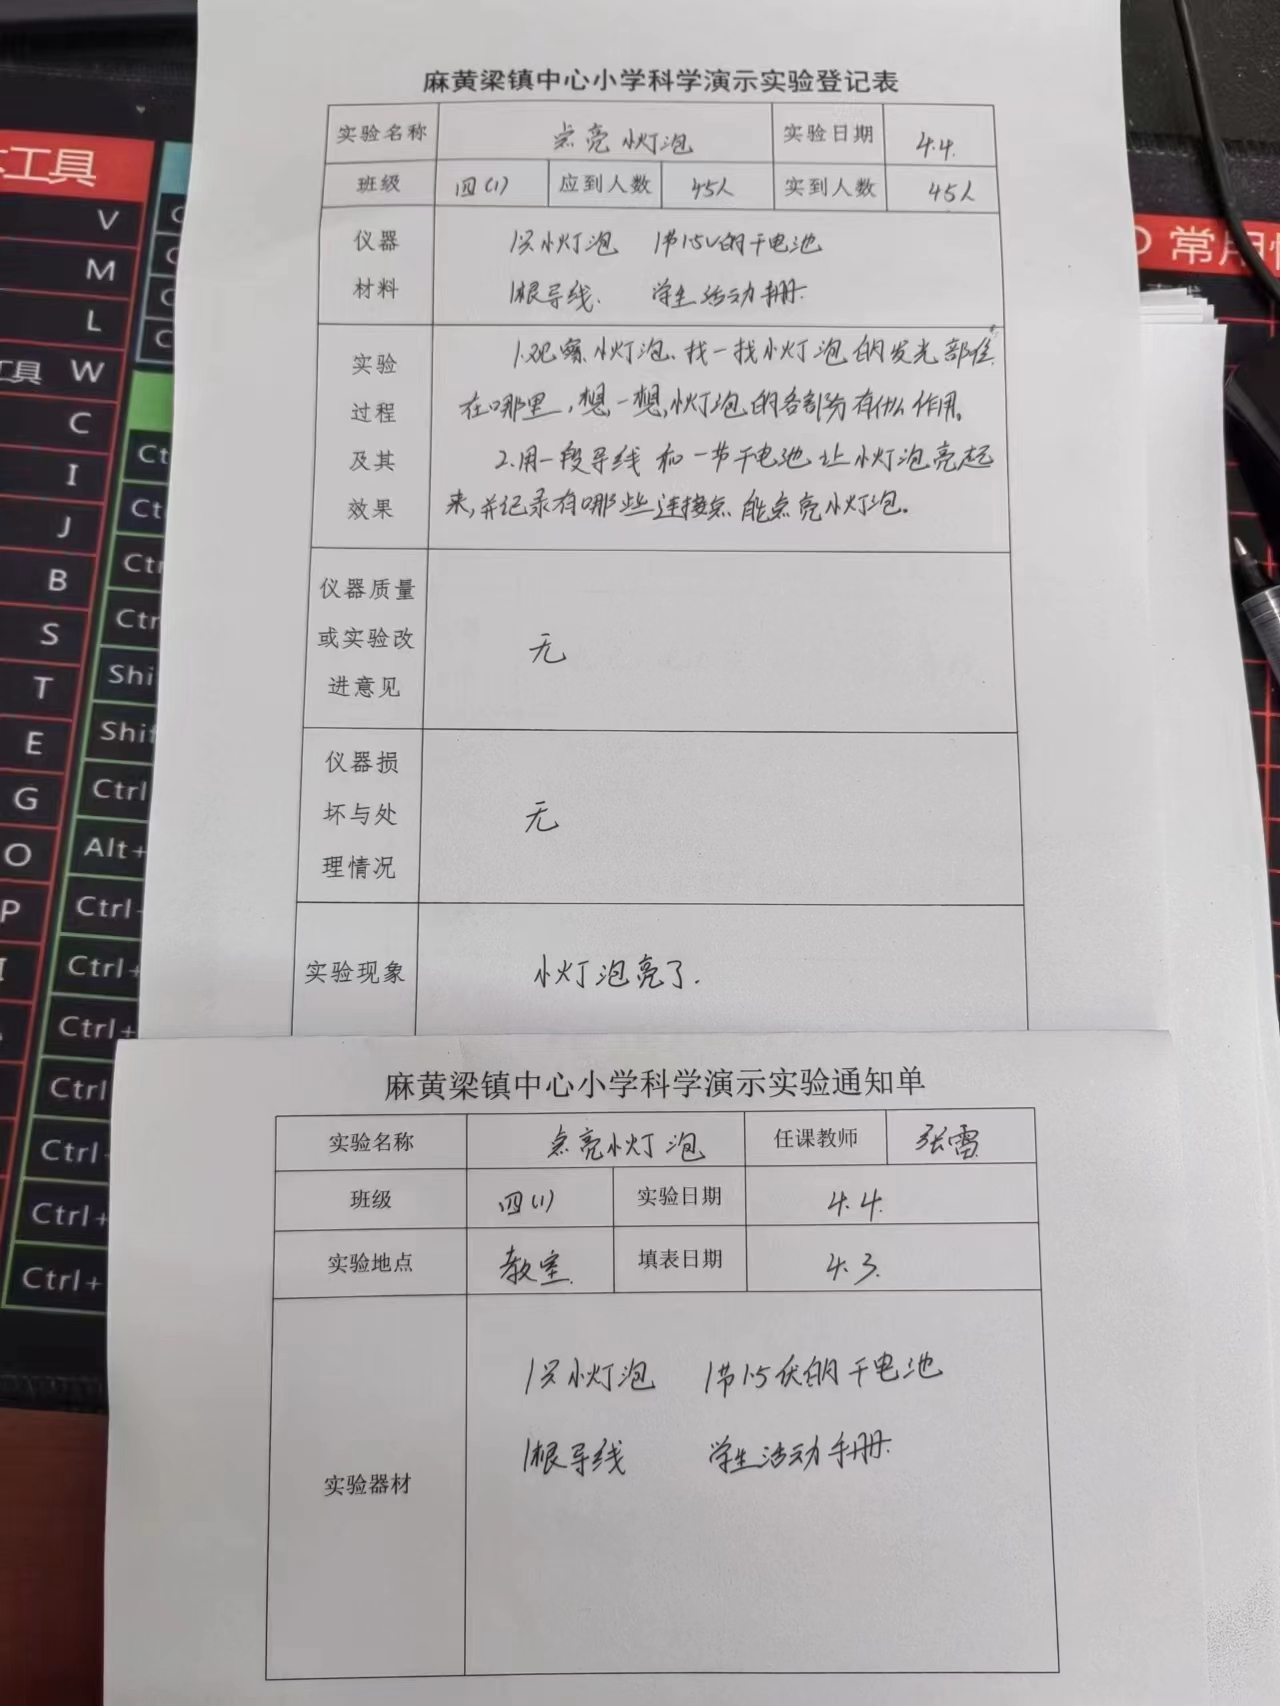 麻黄梁镇中心小学科学演示实验登记表
实验名称 点亮小灯泡 实验日期 4.4.
班级 四(1) 应到人数 45人 实到人数 45人
仪器 1只小灯泡 1节1.5V的干电池
材料 1根导线. 学生活动手册.
实验 1.观察小灯泡、找一找小灯泡的发光部位
过程 在哪里，想一想,小灯泡的各部分有什么作用。
及其 2.用一段导线和一节干电池让小灯泡亮起
效果 来,并记录有哪些连接点能点亮小灯泡。
仪器质量
或实验改 无
进意见
仪器损
坏与处 无
理情况
实验现象 小灯泡亮了.
麻黄梁镇中心小学科学演示实验通知单
实验名称 点亮小灯泡 任课教师 张雷
班级 四(1) 实验日期 4.4.
实验地点 教室. 填表日期 4.3.
1只小灯泡 1节1.5伏的干电池
1根导线 学生活动手册.
实验器材
工具
V
M
L
工具 W
C
I
J
B
S
T
E
G
O
P
Ct
Ct
Ctr
Ctr
Shi
Shif
Ctrl
Alt+
Ctrl
Ctrl+
Ctrl+
Ctrl
Ctrl
Ctrl+
Ctrl+
常用